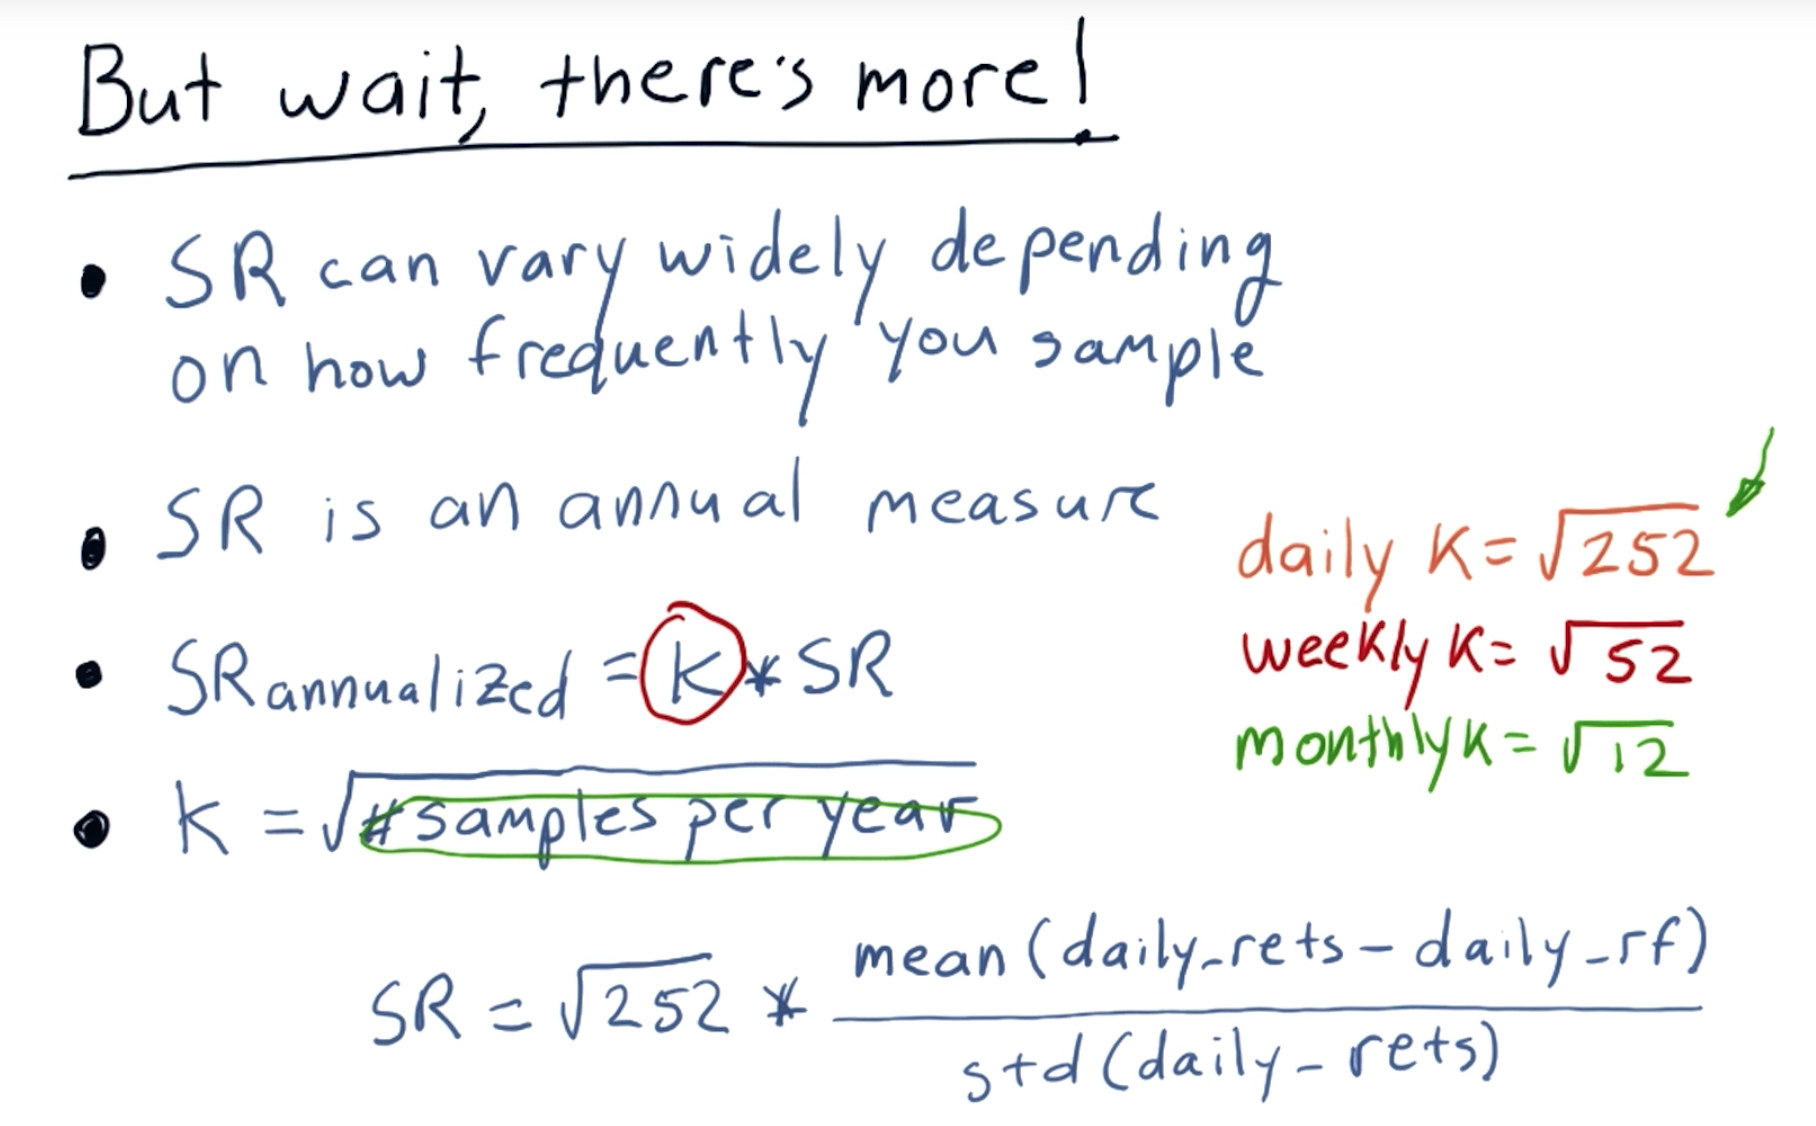 But wait, there's more!
• SR can vary widely depending
on how frequently you sample
• SR is an annual measure
• SRannualized = k * SR
• k = √#samples per year
daily k = √252
weekly k = √52
monthly k = √12
SR = √252 * mean(daily_rets - daily_rf)
std(daily_rets)